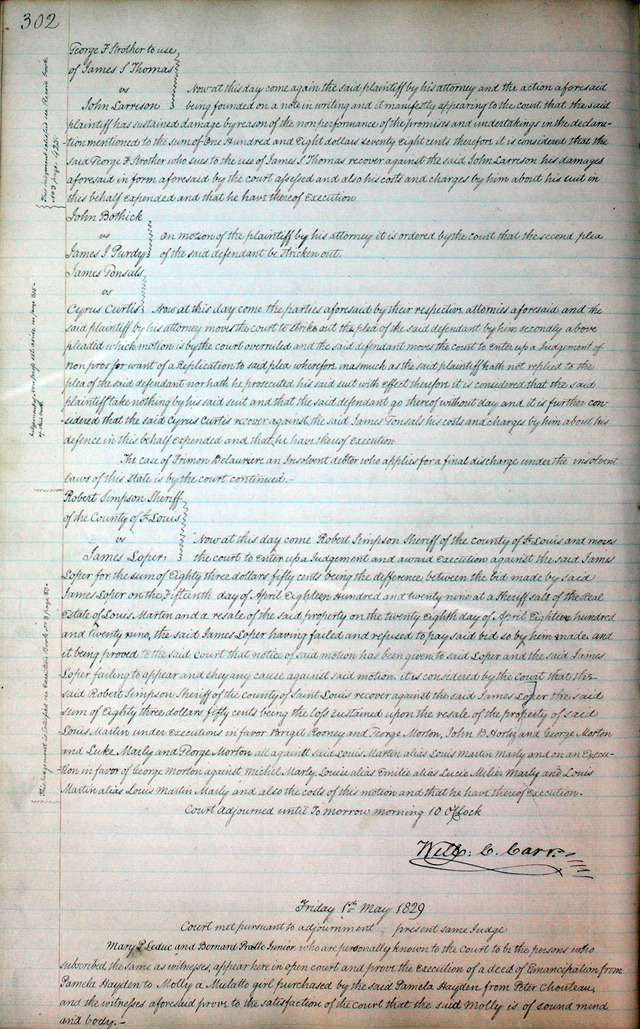 302
George F Strother to use
of James S Thomas
vs
John Larreson
Now at this day come again the said plaintiff by his attorney and the action aforesaid
being founded on a note in writing and it manifestly appearing to the court that the said
plaintiff has sustained damage by reason of the nonperformance of the promises and undertakings in the declara-
tion mentioned to the sum of One Hundred and Eight dollars seventy eight cents therefore it is considered that the
said George F Strother who sues to the use of James S Thomas recover against the said John Larreson his damages
aforesaid in form aforesaid by the court assessed and also his costs and charges by him about his suit in
this behalf expended and that he have thereof Execution
John Bothick
vs
James J Purdy
On motion of the plaintiff by his attorney it is ordered by the court that the second plea
of the said defendant be stricken out.
James Tonsals
vs
Cyrus Curtis
Now at this day come the parties aforesaid by their respective attornies aforesaid and the
said plaintiff by his attorney moves the court to strike out the plea of the said defendant by him secondly above
pleaded which motion is by the court overruled and the said defendant moves the court to enter up a Judgement of
non pros for want of a Replication to said plea wherefore inasmuch as the said plaintiff hath not replied to the
plea of the said defendant nor hath he prosecuted his said suit with effect therefore it is considered that the said
plaintiff take nothing by his said suit and that the said defendant go thereof without day and it is further con-
sidered that the said Cyrus Curtis recover against the said James Tonsals his costs and charges by him about his
defence in this behalf expended and that he have thereof execution
The case of Frimon Delauriere an Insolvent debtor who applies for a final discharge under the insolvent
laws of this state is by the court continued.-
Robert Simpson Sheriff
of the County of St Louis
vs
James Loper
Now at this day come Robert Simpson Sheriff of the county of St Louis and moves
the court to enter up a Judgement and award execution against the said James
Loper for the sum of Eighty three dollars fifty cents being the difference between the bid made by said
James Loper on the Fifteenth day of April Eighteen Hundred and twenty nine at a Sheriff sale of the Real
Estate of Louis Martin and a resale of the said property on the twenty eighth day of April Eighteen hundred
and twenty nine, the said James Loper having failed and refused to pay said bid so by him made and
it being proved to the said court that notice of said motion has been given to said Loper and the said James
Loper failing to appear and shew any cause against said motion. it is considered by the court that the
said Robert Simpson Sheriff of the county of Saint Louis recover against the said James Loper the said
sum of Eighty three dollars fifty cents being the loss sustained upon the resale of the property of said
Louis Martin under Executions in favor Bergit Rooney and George Morton, John B and George Morton
and Luke Marly and George Morton all against said Louis Martin alias Louis Martin Marly and on an Execu-
tion in favor of George Morton against Michel Marly, Louise alias Emilie alias Lucie Melier Marly and Louis
Martin alias Louis Martin Marly and also the costs of this motion and that he have thereof Execution.
Court adjourned until To morrow morning 10 OClock
Will: C. Carr
Friday 1st May 1829
Court met pursuant to adjournment present same Judge
Mary P. Leduc and Bernard Pratte Junior who are personally known to the court to be the persons who
subscribed the same as witnesses, appear here in open court and prove the execution of a deed of Emancipation from
Pamela Hayden to Molly a Mulatto girl purchased by the said Pamela Hayden from Peter Chouteau
and the witnesses aforesaid prove to the satisfaction of the court that the said Molly is of sound mind
and body.-